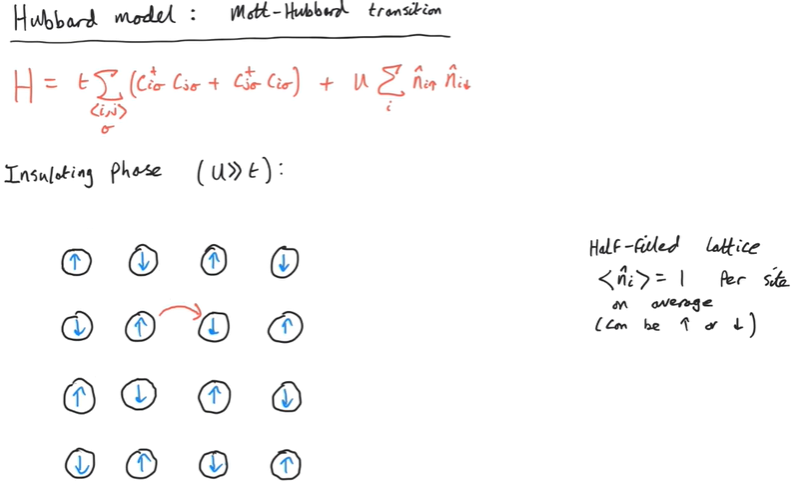 Hubbard model : Mott-Hubbard transition
H = t ∑ (c†iσ cjσ + c†jσ ciσ) + U ∑ n̂i↑ n̂i↓
<i,j> i
σ
Insulating Phase (U≫t):
Half-filled lattice
<n̂i> = 1 Per site
on average
(can be ↑ or ↓)
↑ ↓ ↑ ↓
↓ ↑ ↓ ↑
↑ ↓ ↑ ↓
↓ ↑ ↓ ↑